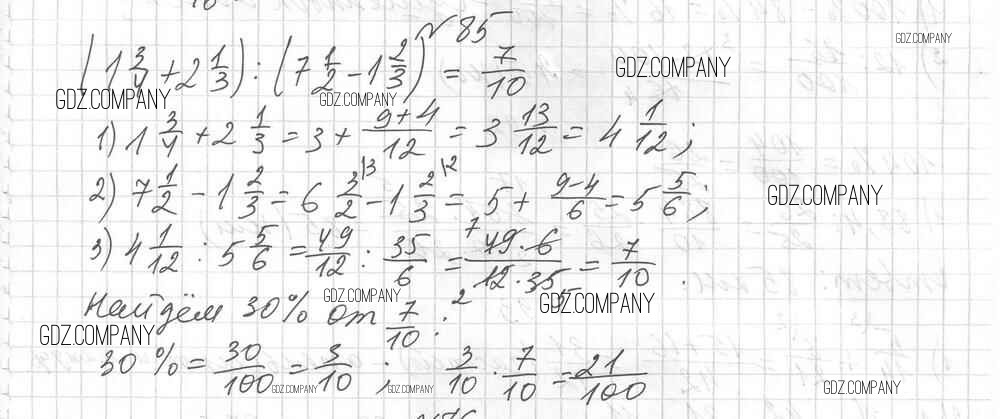 №85
(1 3/4 + 2 1/3) : (7 1/2 - 1 2/3) = 7/10
1) 1 3/4 + 2 1/3 = 3 + 9+4/12 = 3 13/12 = 4 1/12;
2) 7 1/2 - 1 2/3 = 6 3/2 |3 - 1 2/3 |2 = 5 + 9-4/6 = 5 5/6;
3) 4 1/12 : 5 5/6 = 49/12 : 35/6 = 7 49·6/12·35 2 5 = 7/10.
Найдём 30% от 7/10:
30% = 30/100 = 3/10; 3/10 · 7/10 = 21/100
GDZ.COMPANY
GDZ.COMPANY
GDZ.COMPANY
GDZ.COMPANY
GDZ.COMPANY
GDZ.COMPANY
GDZ.COMPANY
GDZ.COMPANY
GDZ.COMPANY
GDZ.COMPANY
GDZ.COMPANY